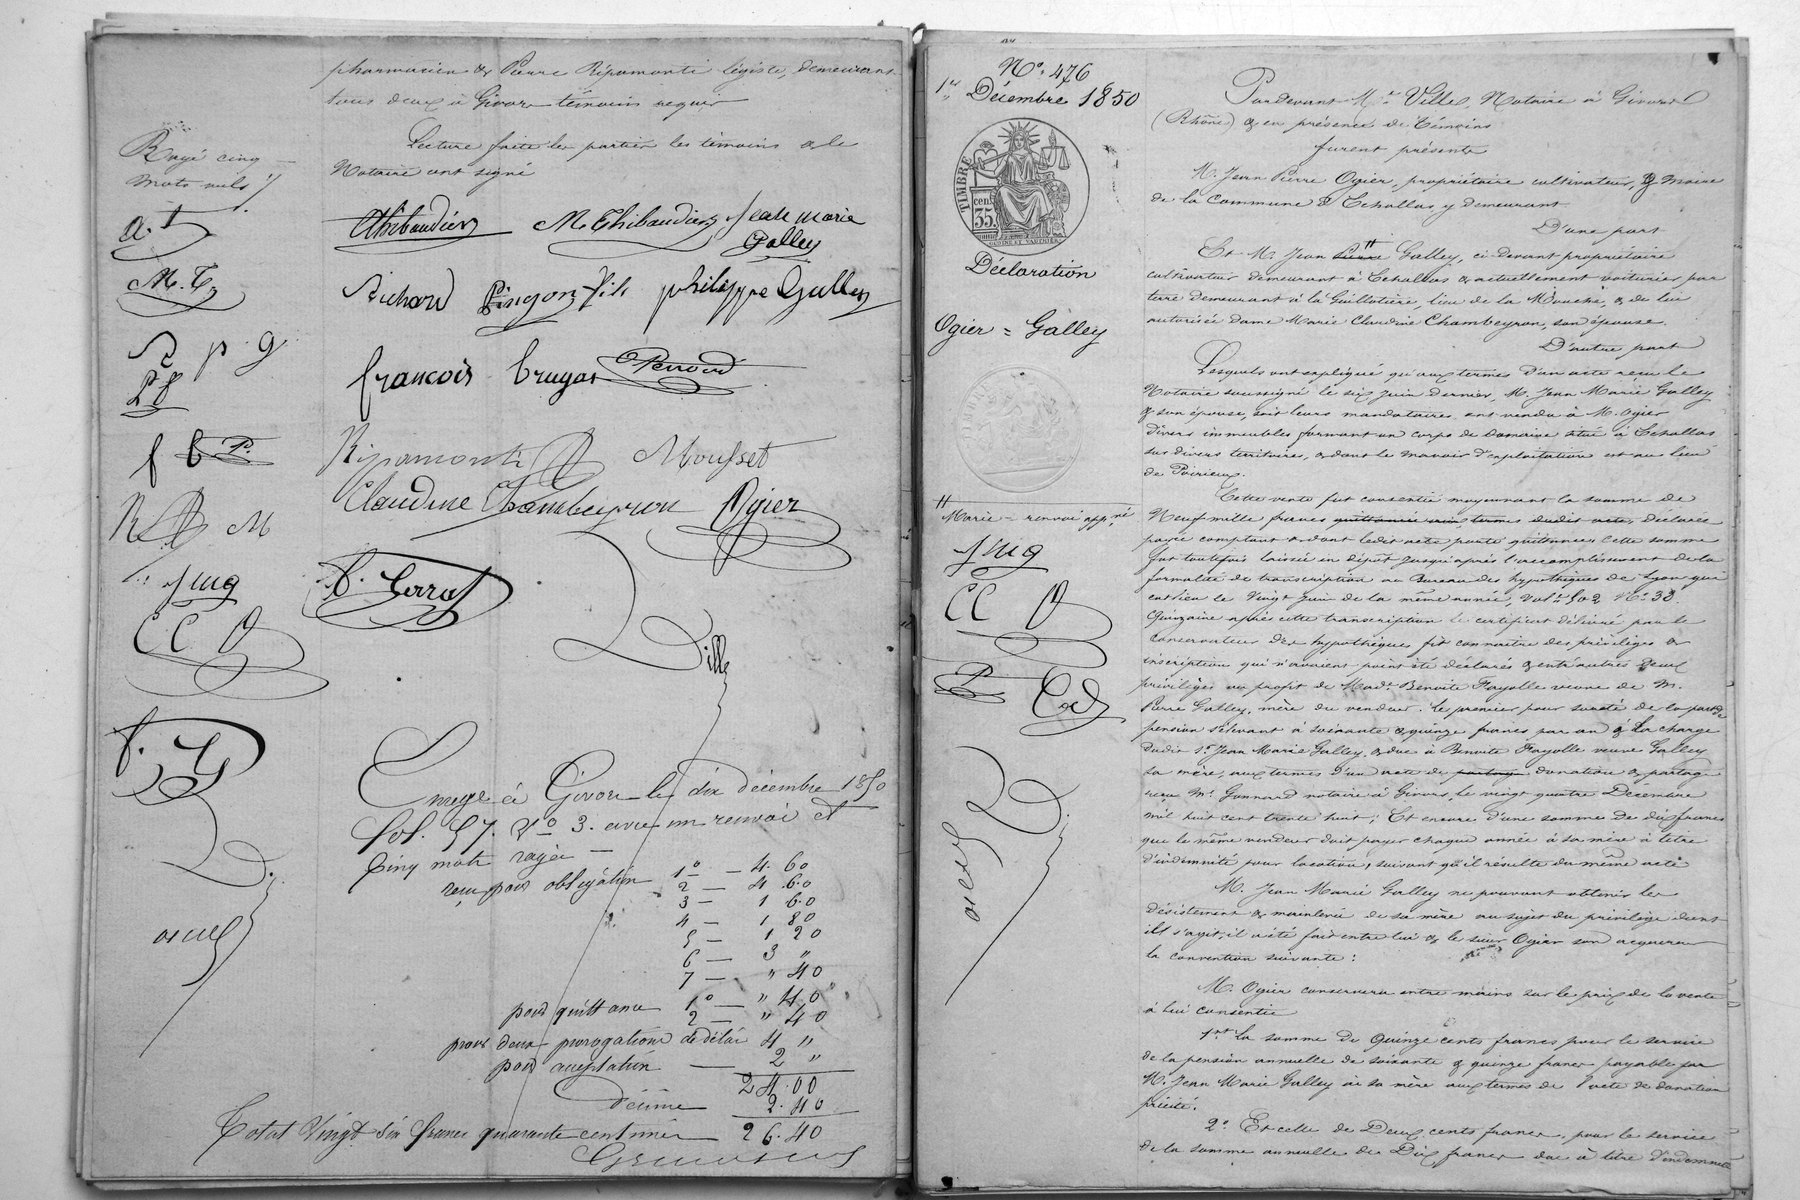 pharmacien & Pierre Ripamonti légiste, demeurant
tous deux à Givors témoins requis
Lecture faite les parties les témoins & le
Notaire ont signé
Rayé cinq
mots nuls
a. T
M. T
R p. g
P f
f B P.
R M
JMG
C C O
AThibaudier M. Thibaudier Jean Marie
Galley
Richard Pingon fils philippe Galley
françois Bruyas Perroud
Ripamonti Mousset
Claudine Chambeyron Ogier
Ville
Enregé à Givors le dix décembre 1850
fol. 57. Vo 3. avec un renvoi et
cinq mots rayés
reçu pour obligation 1o — 4. 60
2 — 4. 60
3 — 1 60
4 — 1 80
5 — 1 20
6 — 3 "
7 — " 40
pour quittance 1o — " 40
2 — " 40
pour deux prorogations de délai 4 "
pour acceptation — 2 "
24.00
décime 2.40
Total Vingt six francs quarante centimes 26.40
No. 476
1er Décembre 1850
TIMBRE
cen.
35
Déclaration
Ogier = Galley
Marie = renvoi appvé
JMG
C C O
Pardevant Me Ville, Notaire à Givors
(Rhône) & en présence de témoins
furent présents
M. Jean Pierre Ogier, propriétaire cultivateur, & maire
de la commune d'Echallas y demeurant
D'une part
Et M. Jean Pierre Galley, ci devant propriétaire
cultivateur demeurant à Echallas & actuellement voiturier par
terre demeurant à la Guillotière, lieu de la Mouche, & de lui
autorisée dame Marie Claudine Chambeyron, son épouse.
D'autre part
Lesquels ont expliqué qu'aux termes d'un acte reçu le
Notaire soussigné le six juin dernier, M. Jean Marie Galley
& son épouse, soit leurs mandataires ont vendu à M. Ogier
divers immeubles formant un corps de domaine situé à Echallas
sur divers territoires, & dont le manoir d'exploitation est au lieu
de Poirieux.
Cette vente fut consentie moyennant la somme de
Neuf mille francs quittancée aux termes dudit acte, déclarée
payée comptant & dont ledit acte porte quittance, cette somme
fut toutefois laissée en dépôt jusqu'après l'accomplissement de la
formalité de transcription au Bureau des hypothèques de Lyon qui
eut lieu le Vingt juin de la même année, vol. 502 No. 33.
Quinzaine après cette transcription le certificat délivré par le
conservateur des hypothèques fit connaître des privilèges &
inscription qui n'avaient point été déclarés & entr'autres deux
privilèges au profit de Made. Benoite Fayolle veuve de M.
Pierre Galley, mère du vendeur. Le premier pour sureté de la
pension s'élevant à soixante & quinze francs par an à la charge
dudit sr. Jean Marie Galley, & due à Benoite Fayolle veuve Galley
sa mère, aux termes d'un acte de partage donation & partage
reçu Me. Gonnard notaire à Givors, le vingt quatre Décembre
mil huit cent trente huit; Et encore d'une somme de dix francs
que le même vendeur doit payer chaque année à sa mère à titre
d'indemnité pour location, suivant qu'il résulte du même acte
M. Jean Marie Galley ne pouvant obtenir le
désistement & mainlevée de sa mère au sujet du privilège dont
il s'agit, il a été fait entre lui & le sieur Ogier son acquéreur
la convention suivante:
M. Ogier conservera entre mains sur le prix de la vente
à lui consentie
1ent. la somme de Quinze cents francs pour le service
de la pension annuelle de soixante & quinze francs payable par
M. Jean Marie Galley à sa mère aux termes de l'acte de donation
précité.
2o. Et celle de Deux cents francs, pour le service
de la somme annuelle de Dix francs due à titre d'indemnité